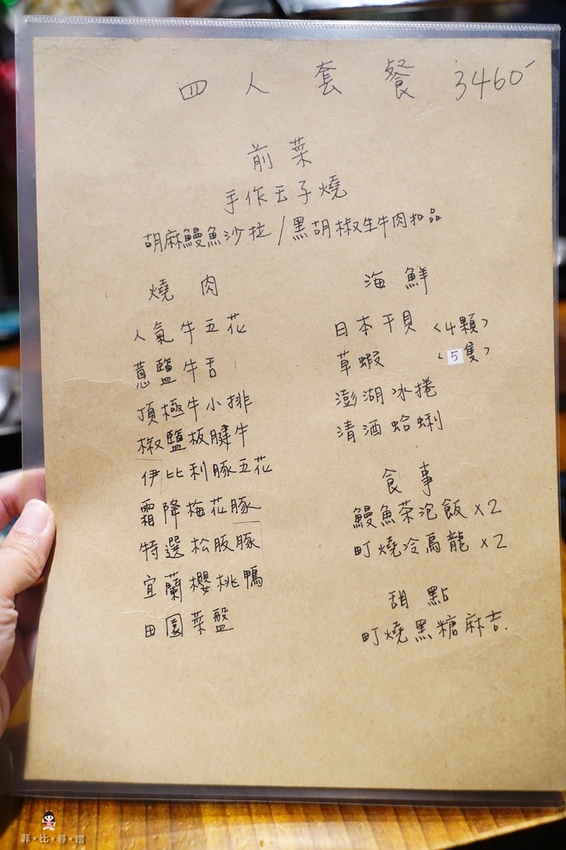 四人套餐 3460-
前菜
手作玉子燒
胡麻鰻魚沙拉/黑胡椒生牛肉和品
燒肉
人氣牛五花
蔥鹽牛舌
頂極牛小排
椒鹽板腱牛
伊比利豚五花
霜降梅花豚
特選松阪豚
宜蘭櫻桃鴨
田園菜盤
海鮮
日本干貝 <4顆>
草蝦 <5隻>
澎湖冰捲
清酒蛤蜊
食事
鰻魚茶泡飯 x2
町燒冷烏龍 x2
甜點
町燒黑糖麻吉.
菲·比·尋·常